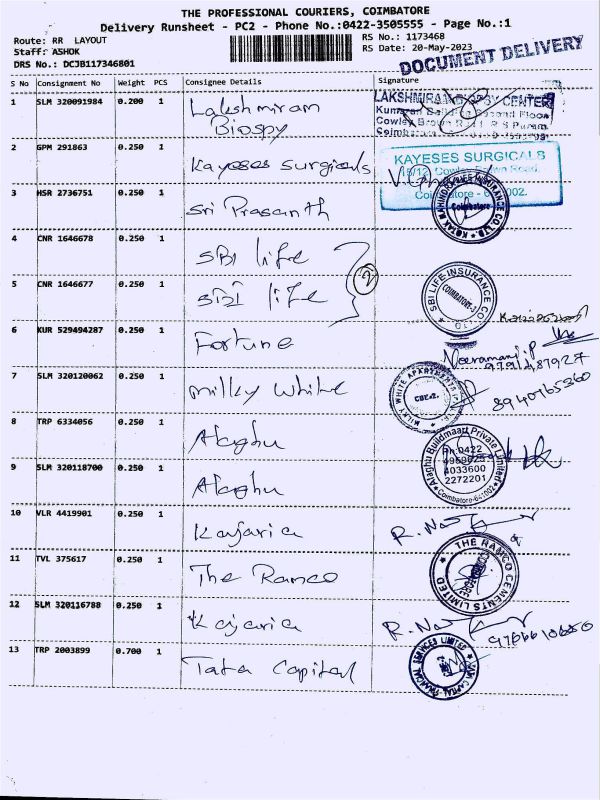 THE PROFESSIONAL COURIERS, COIMBATORE
Delivery Runsheet - PC2 - Phone No.:0422-3505555 - Page No.:1
Route: RR LAYOUT
Staff: ASHOK
DRS No.: DCJB117346801
RS No.: 1173468
RS Date: 20-May-2023
DOCUMENT DELIVERY
S No Consignment No Weight PCS Consignee Details Signature
1 SLM 320091984 0.200 1 Lakshmiram Biospy
LAKSHMIRAM BIOPSY CENTER
2 GPM 291863 0.250 1 Kayeses Surgicals
KAYESES SURGICALS
15/12, Cowley Brown Road,
Coimbatore - 641 002.
3 HSR 2736751 0.250 1 Sri Prasanth
KOTAK MAHINDRA LIFE INSURANCE CO. LTD
Coimbatore
4 CNR 1646678 0.250 1 SBI life
2
5 CNR 1646677 0.250 1 SBI life
SBI LIFE INSURANCE CO. LTD
COIMBATORE-3
6 KUR 529494287 0.250 1 Fortune
7 SLM 320120062 0.250 1 Milky White
MILKY WHITE APARTMENTS
CBE-2.
8940765360
8 TRP 6334056 0.250 1 Alaghu
Alaghu Buildmaart Private Limited
Ph:0422
4033600
2272201
Coimbatore-641002
9 SLM 320118700 0.250 1 Alaghu
10 VLR 4419901 0.250 1 Kajaria
11 TVL 375617 0.250 1 The Ramco
THE RAMCO CEMENTS LIMITED
12 SLM 320116788 0.250 1 Kajaria
13 TRP 2003899 0.700 1 Tata Capital
FINANCIAL SERVICES LIMITED